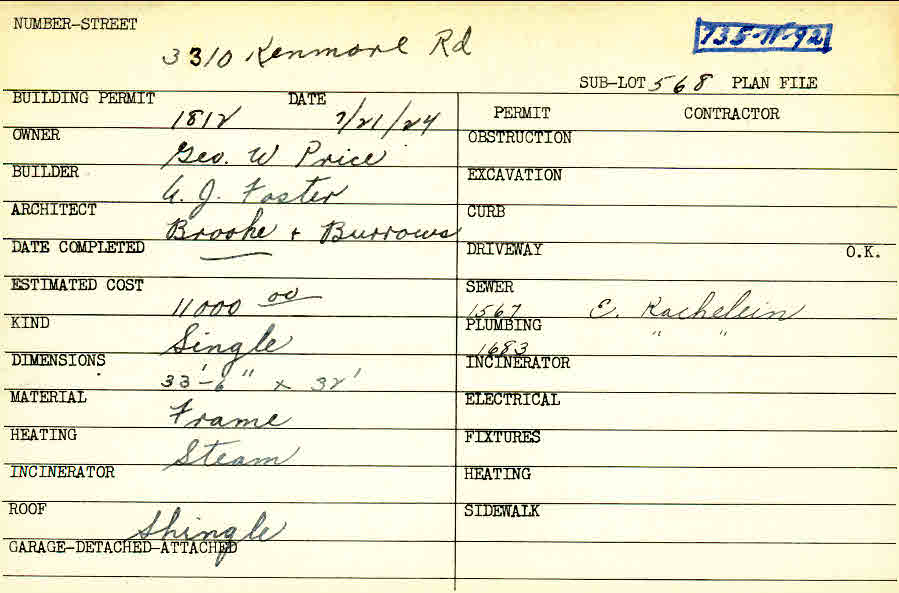 NUMBER-STREET
3310 Kenmore Rd
735-11-92
SUB-LOT 568 PLAN FILE
BUILDING PERMIT DATE
1812 7/21/24
OWNER
Geo. W Price
BUILDER
A. J. Foster
ARCHITECT
Brooke + Burrows
DATE COMPLETED
ESTIMATED COST
11000 00
KIND
Single
DIMENSIONS
33'-6" x 32'
MATERIAL
Frame
HEATING
Steam
INCINERATOR
ROOF
Shingle
GARAGE-DETACHED-ATTACHED
PERMIT CONTRACTOR
OBSTRUCTION
EXCAVATION
CURB
DRIVEWAY O.K.
SEWER
1567 E. Kachelein
PLUMBING " "
1683
INCINERATOR
ELECTRICAL
FIXTURES
HEATING
SIDEWALK